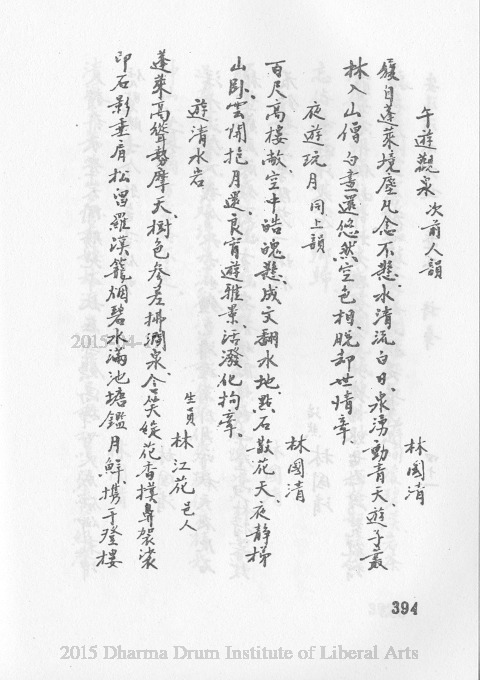 午遊觀泉 次前人韻
林國清
緩自蓬萊境塵凡念不懸水清流白日泉湧動青天遊子叢
林入山僧白晝還悠然空色相脫却世情牽
夜遊玩月 同上韻
林國清
百尺高樓敞空中皓魄懸成文翻水地點石散花天夜靜梯
山臥雲開抱月還良宵遊雅景活潑化拘牽
遊清水岩
生員 林江花 邑人
蓬萊高聳勢摩天樹色參差掃澗泉含笑綻花香撲鼻袈裟
印石影垂肩松留羅漢籠烟碧水滿池塘鑑月鮮携手登樓
394
2015 Dharma Drum Institute of Liberal Arts